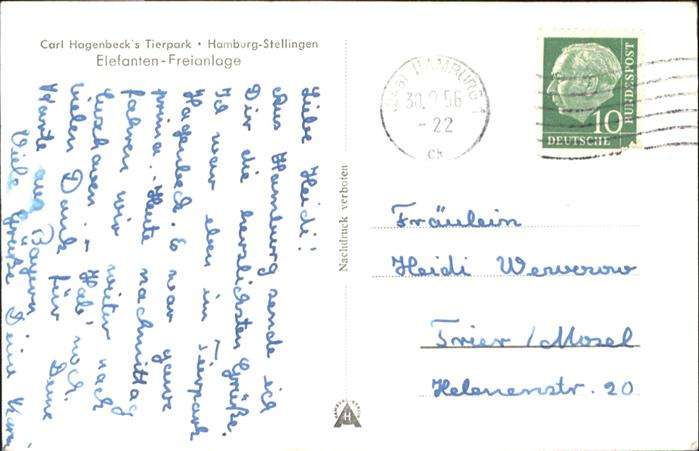 Carl Hagenbeck's Tierpark • Hamburg-Stellingen
Elefanten-Freianlage
Liebe Heidi!
Aus Hamburg sende ich
Dir die herzlichsten Grüße.
Ich war eben im Tierpark
Hagenbeck. Es war ganz
prima. Heute nachmittag
fahren wir weiter nach
Cuxhaven. Hab' noch
vielen Dank für Deine
Karte aus Bayern
Viele Grüße Deine
Nachdruck verboten
HAMBURG 1
30. 56
- 22
10
DEUTSCHE
BUNDESPOST
Fräulein
Heidi Werverow
Trier / Mosel
Helenenstr. 20
H